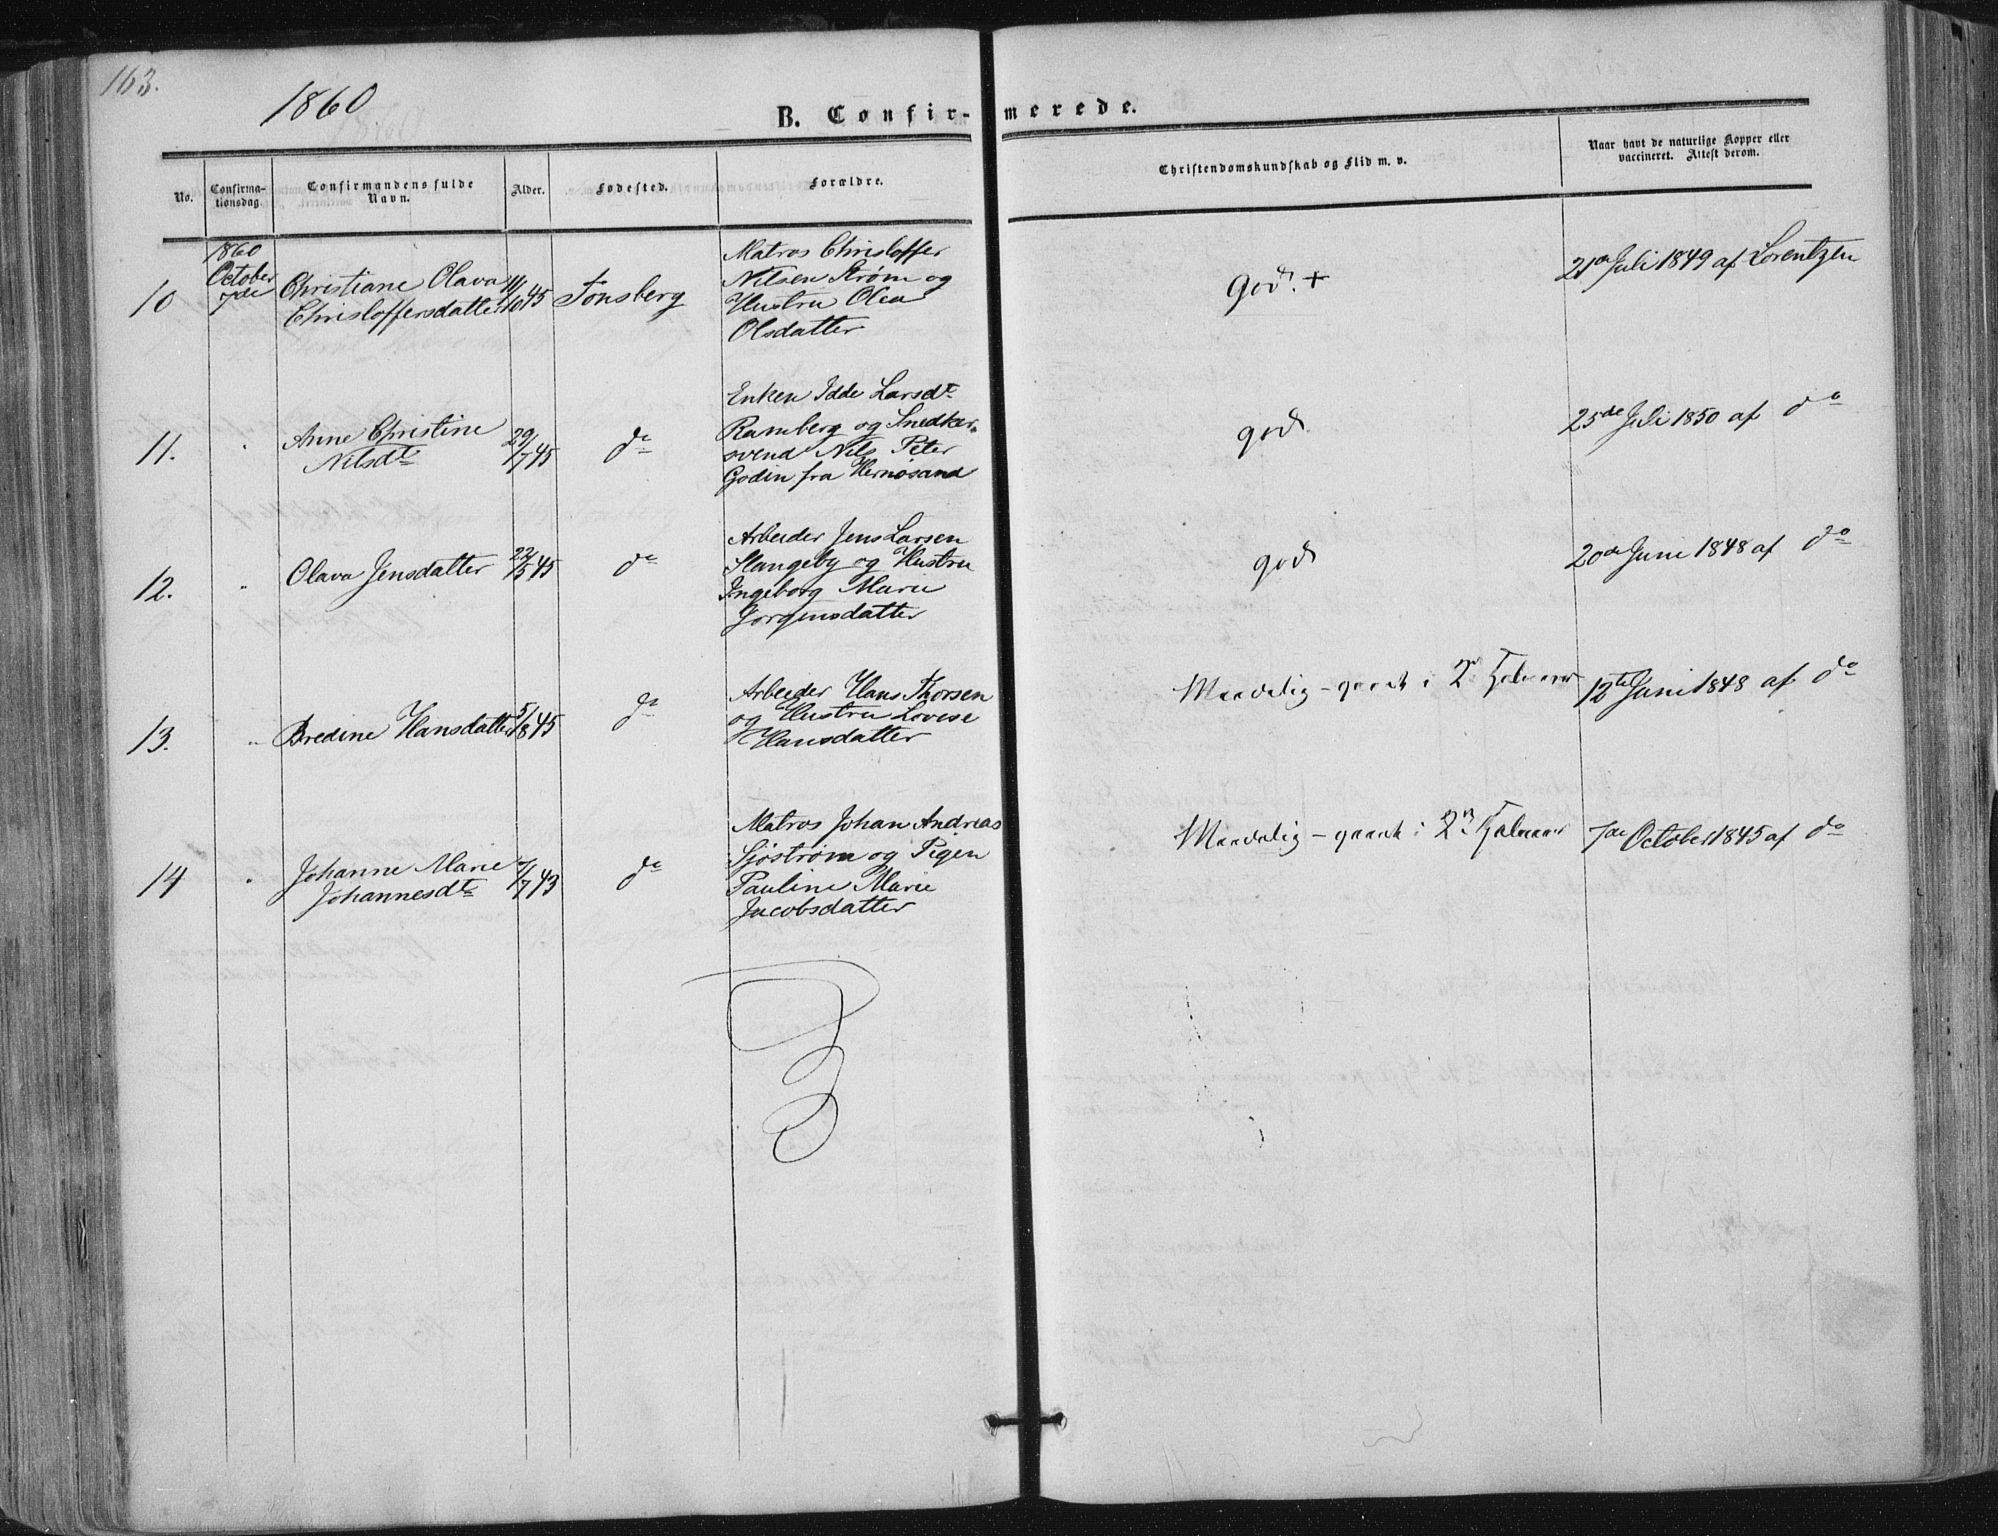 163.
1860
B. Confir-merede.
No.
Confirma-
tionsdag.
Confirmandens fulde
Navn.
Alder.
Fødested.
Forældre.
Christendomskundskab og Flid m. v.
Naar havt de naturlige Kopper eller
vaccineret. Attest derom.
10
1860
October
7de
Christiane Olava
Christoffersdatter
11/10 45
Tønsberg
Matros Christoffer
Nilsen Strøm og
Hustru Olea
Olsdatter
God. +
21de Juli 1849 af Lorentzen
11.
"
Anne Christine
Nilsdt
29/7 45
do
Enken Idde Larsdt
Ramberg og Snedker-
svend Nils Peter
Godin fra Hernøsand
god
25de Juli 1850 af do
12.
"
Olava Jensdatter
22/5 45
do
Arbeider Jens Larsen
Slangeby og Hustru
Ingeborg Marie
Jørgensdatter
god
20de Juni 1848 af do
13.
"
Bredine Hansdatter
5/8 45
do
Arbeider Hans Thorsen
og Hustru Lovise
Hansdatter
Maadelig - i 2
12te Juni 1848 af do
14
"
Johanne Marie
Johannesdt
/7 43
do
Matros Johan Andreas
Sjøstrøm og Pigen
Pauline Marie
Jacobsdatter
Maadelig - i 2
7de October 1845 af do